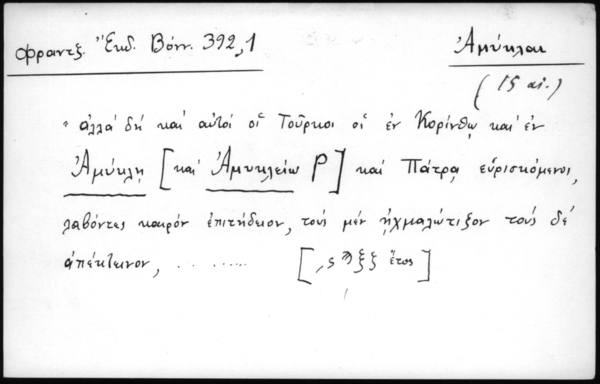 Φραντζ. Ἔκδ. Βόνν. 392,1
Ἀμύκλαι
(15 αἰ.)
"ἀλλὰ δὴ καὶ αὐτοὶ οἱ Τοῦρκοι οἱ ἐν Κορίνθῳ καὶ ἐν
Ἀμύκλῃ [καὶ Ἀμυκλείῳ P] καὶ Πάτρᾳ εὑρισκόμενοι,
λαβόντες καιρὸν ἐπιτήδειον, τοὺς μὲν ᾐχμαλώτιζον τοὺς δὲ
ἀπέκτεινον, .........
[͵ϛϡξξ ἔτος]